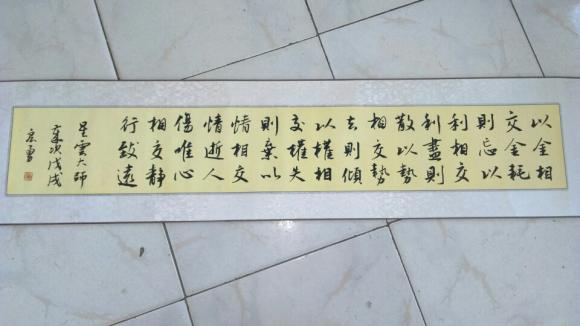 以金相
交金耗
則忘以
利相交
利盡則
散以勢
相交勢
去則傾
以權相
交權失
則棄以
情相交
情逝人
傷唯心
相交静
行致遠
星雲大師
歲次戊戌